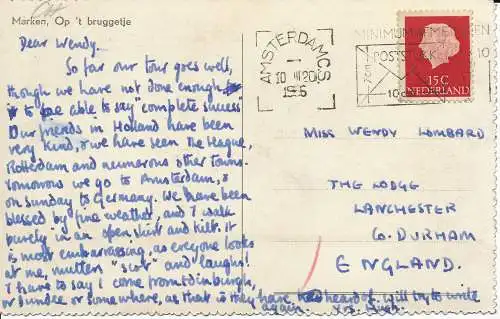 Marken, Op 't bruggetje
Dear Wendy,
So far our tour goes well,
though we have not done enough
to be able to say "complete success"
Our friends in Holland have been
very kind, & we have seen The Hague,
Rotterdam and numerous other towns.
Tomorrow we go to Amsterdam, &
on Sunday to Germany. We have been
blessed by fine weather, and I walk
purely in an open shirt and kilt. It
is most embarrassing, as everyone looks
at me, mutters "scot" and laughs!
I have to say I come from Edinburgh,
or Dundee or somewhere, as that is they have heard of. Will try to write
again. Yrs. Hugh.
AMSTERDAM CS
10 III 20
MINIMUM AFMETINGEN
POSTSTUK
10
15 C
NEDERLAND
MISS WENDY LOMBARD
THE LODGE
LANCHESTER
Co. DURHAM
ENGLAND.